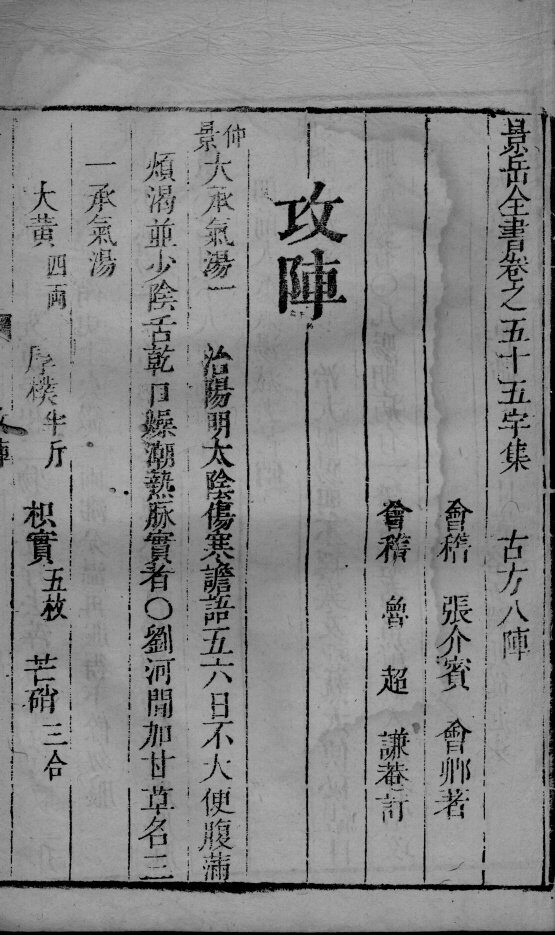 景岳全書卷之五十五字集 古方八陣
會稽 張介賓 會卿著
會稽 魯 超 謙菴訂
攻陣
仲景大承氣湯一 治陽明太陰傷寒譫語五六日不大便腹滿
煩渴並少陰舌乾口燥潮熱脉實者○劉河間加甘草名三
一承氣湯
大黃四兩 厚樸半斤 枳實五枚 芒硝三合